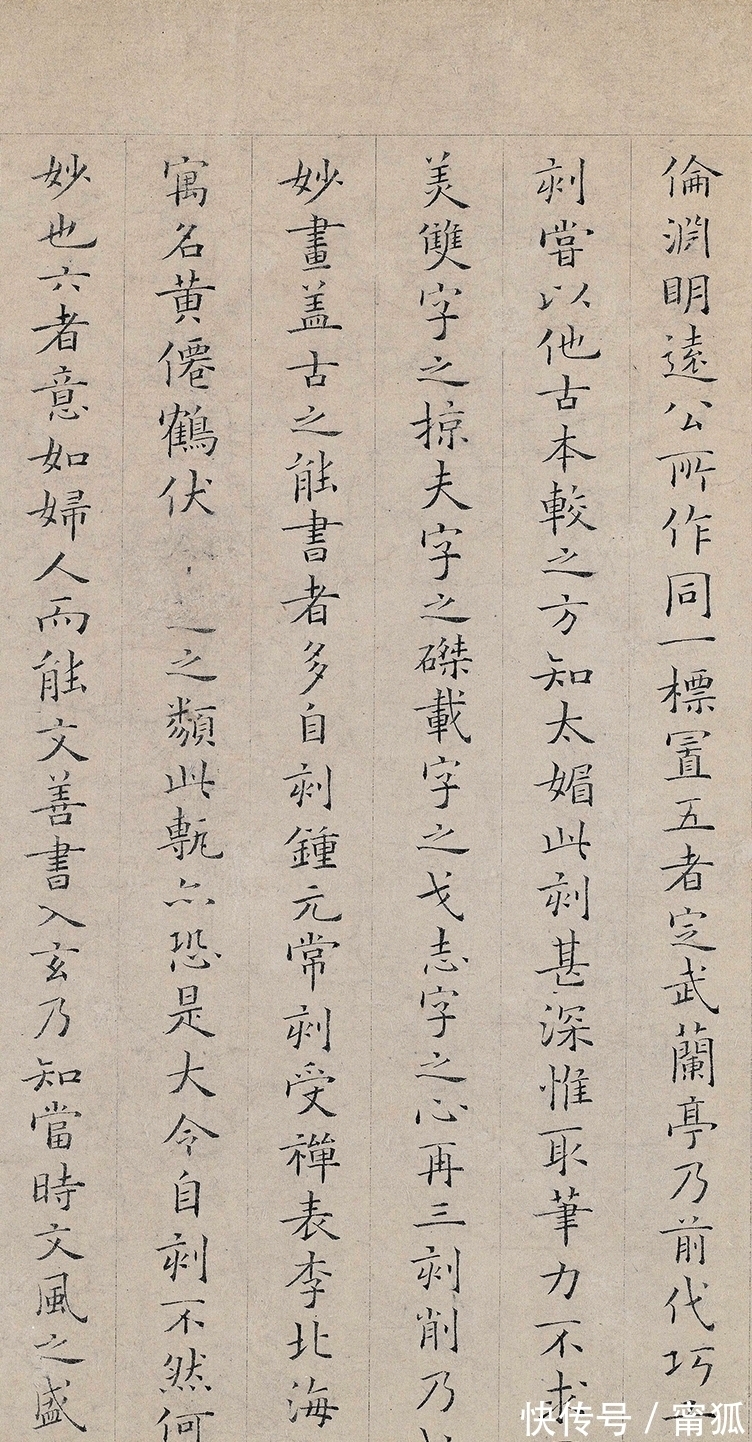 倫淵明遠公所作同一標置五者定武蘭亭乃前代巧
刻嘗以他古本較之方知太媚此刻甚深惟取筆力不求
美雙字之掠夫字之磔載字之戈志字之心再三刻削乃
妙畫蓋古之能書者多自刻鍾元常刻受禪表李北海
寓名黄僊鶴伏之類此甎亦恐是大令自刻不然何
妙也六者意如婦人而能文善書入玄乃知當時文風之盛
快传号/甯狐